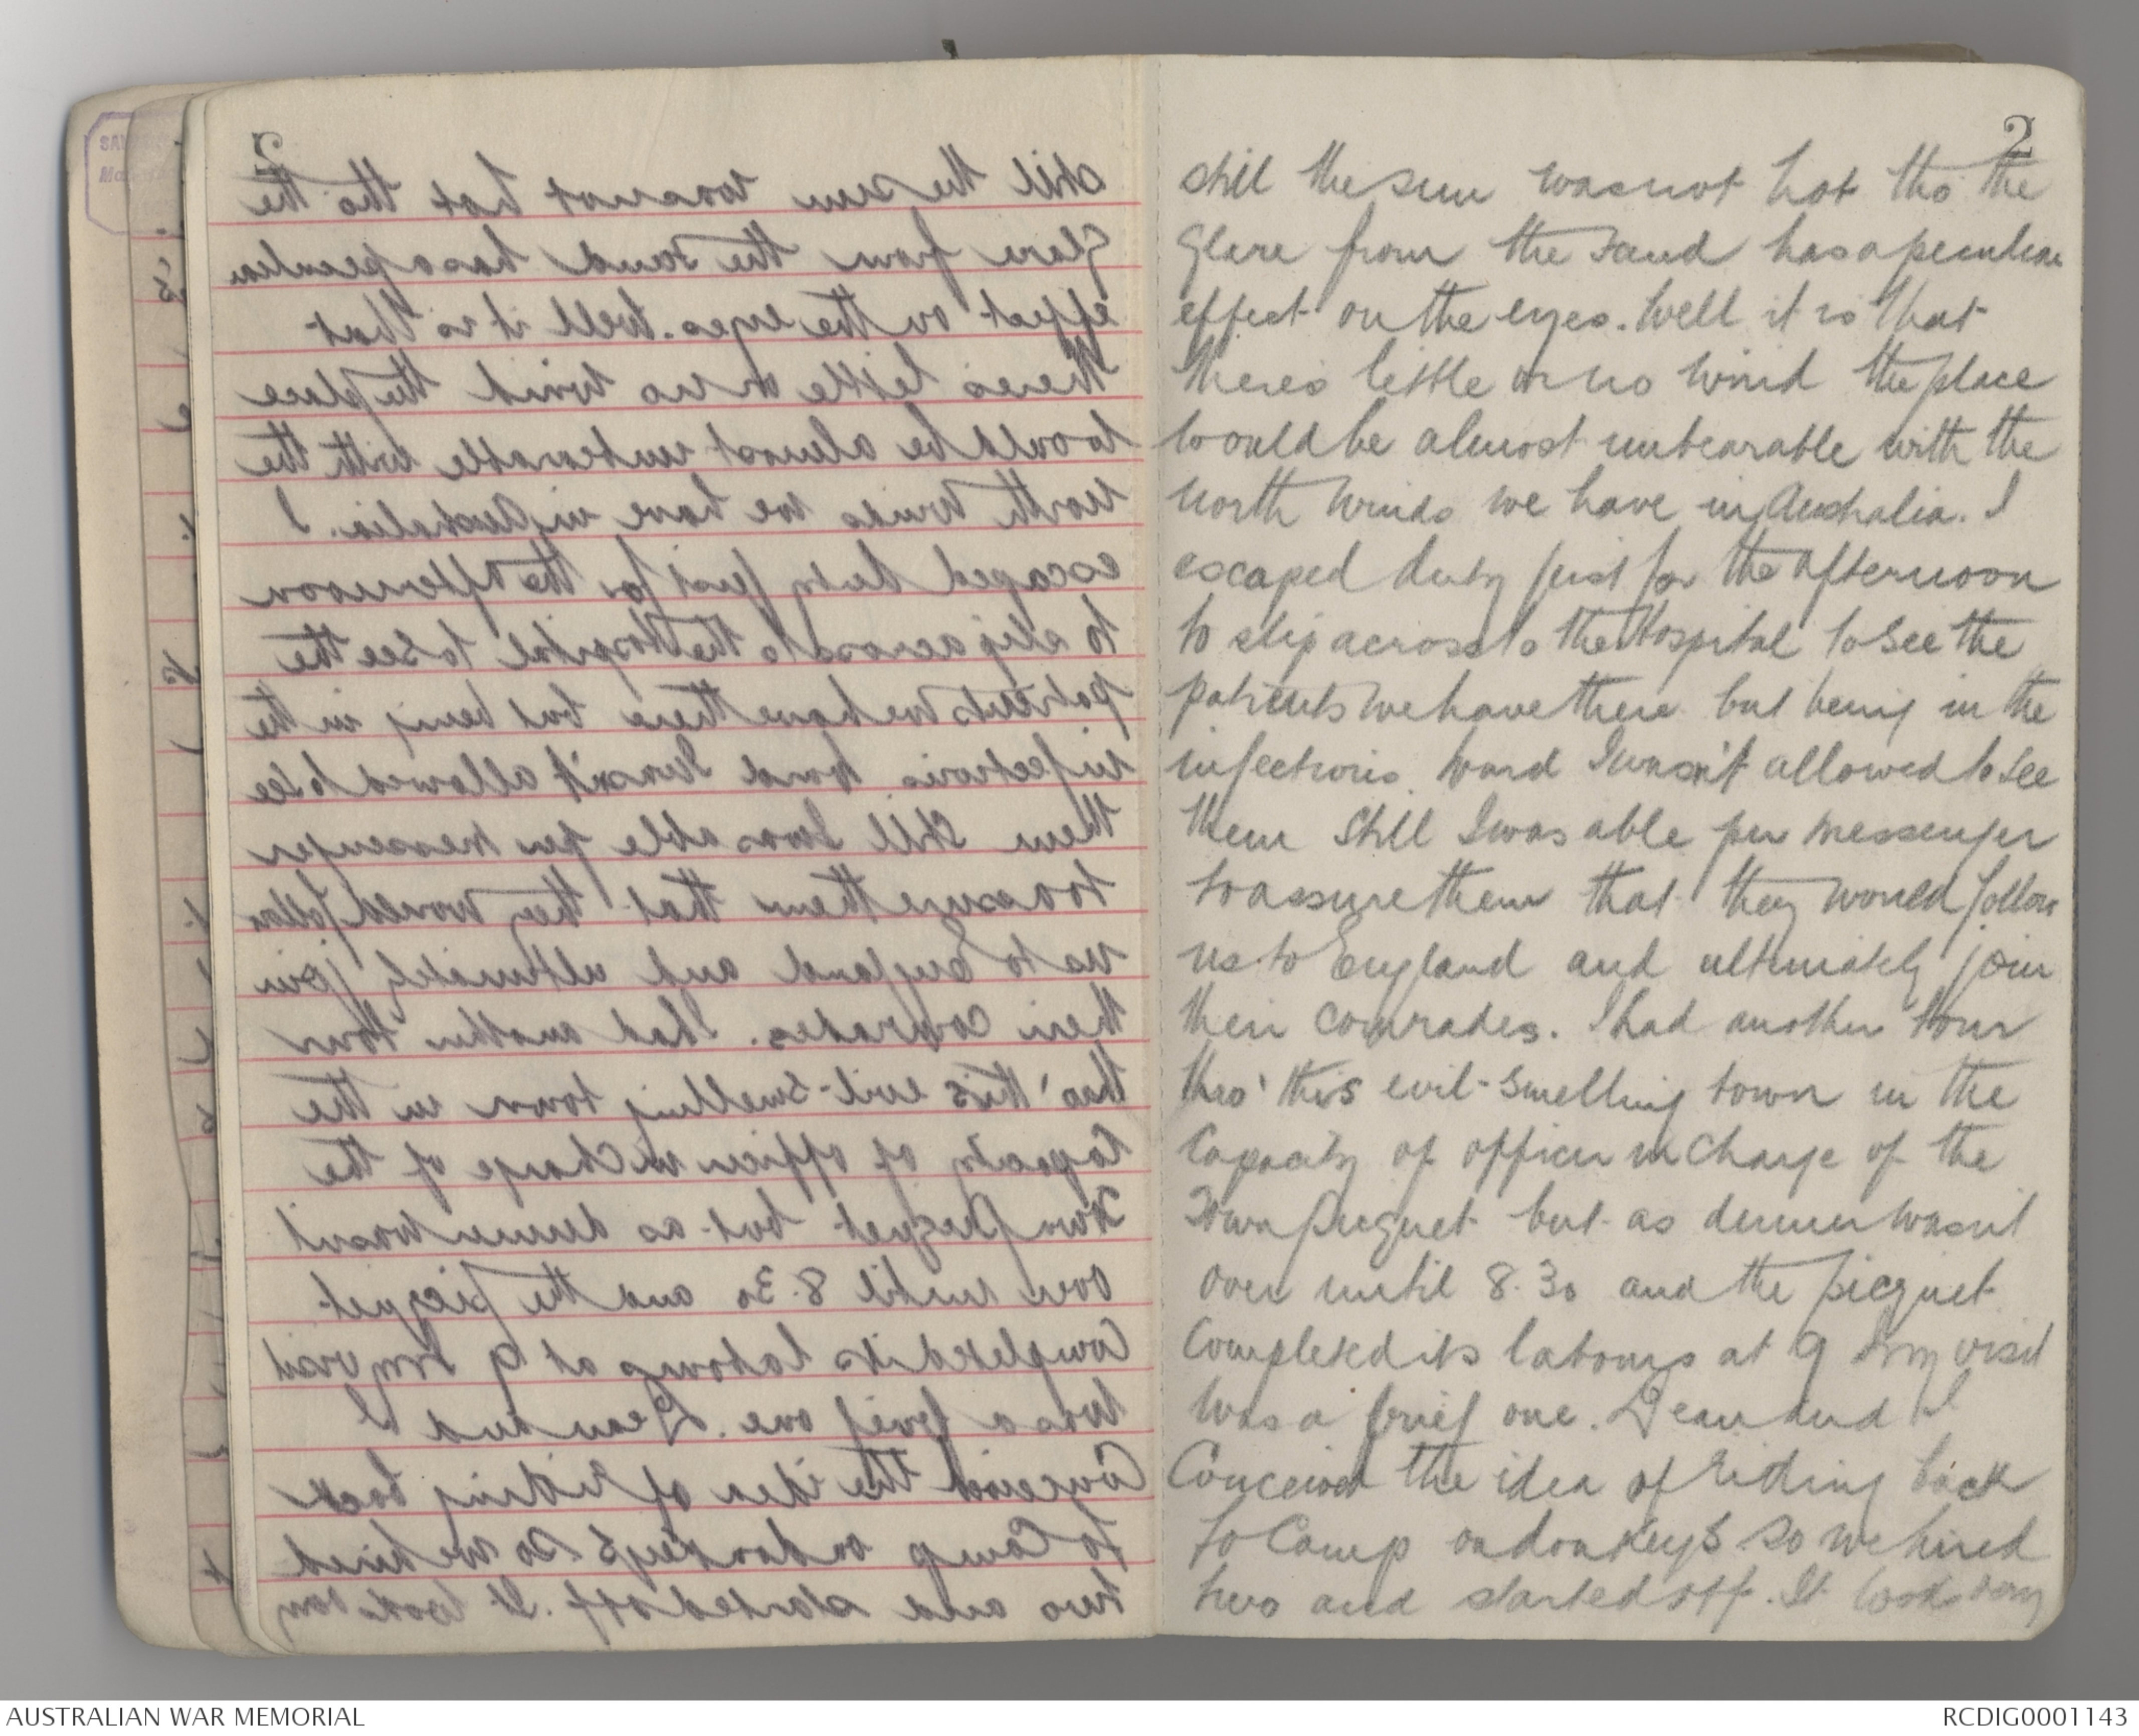 2
still the sun was not hot tho the
glare from the sand has a peculiar
effect on the eyes. Well it is that
theres little or no wind the place
would be almost unbearable with the
north winds we have in Australia. I
escaped duty just for the afternoon
to slip across to the Hospital to see the
patients we have there but being in the
infectious ward I wasn't allowed to see
them Still I was able per messenger
to assure them that they would follow
us to England and ultimately join
their comrades. I had another tour
thro' this evil-smelling town in the
Capacity of officer in charge of the
Town picquet but as dinner wasnt
over until 8.30 and the picquet
Completed its labours at 9 my visit
was a brief one. Dean and I
Conceived the idea of riding back
to Camp on donkeys so we hired
two and started off. It looks very
AUSTRALIAN WAR MEMORIAL
RCDIG0001143